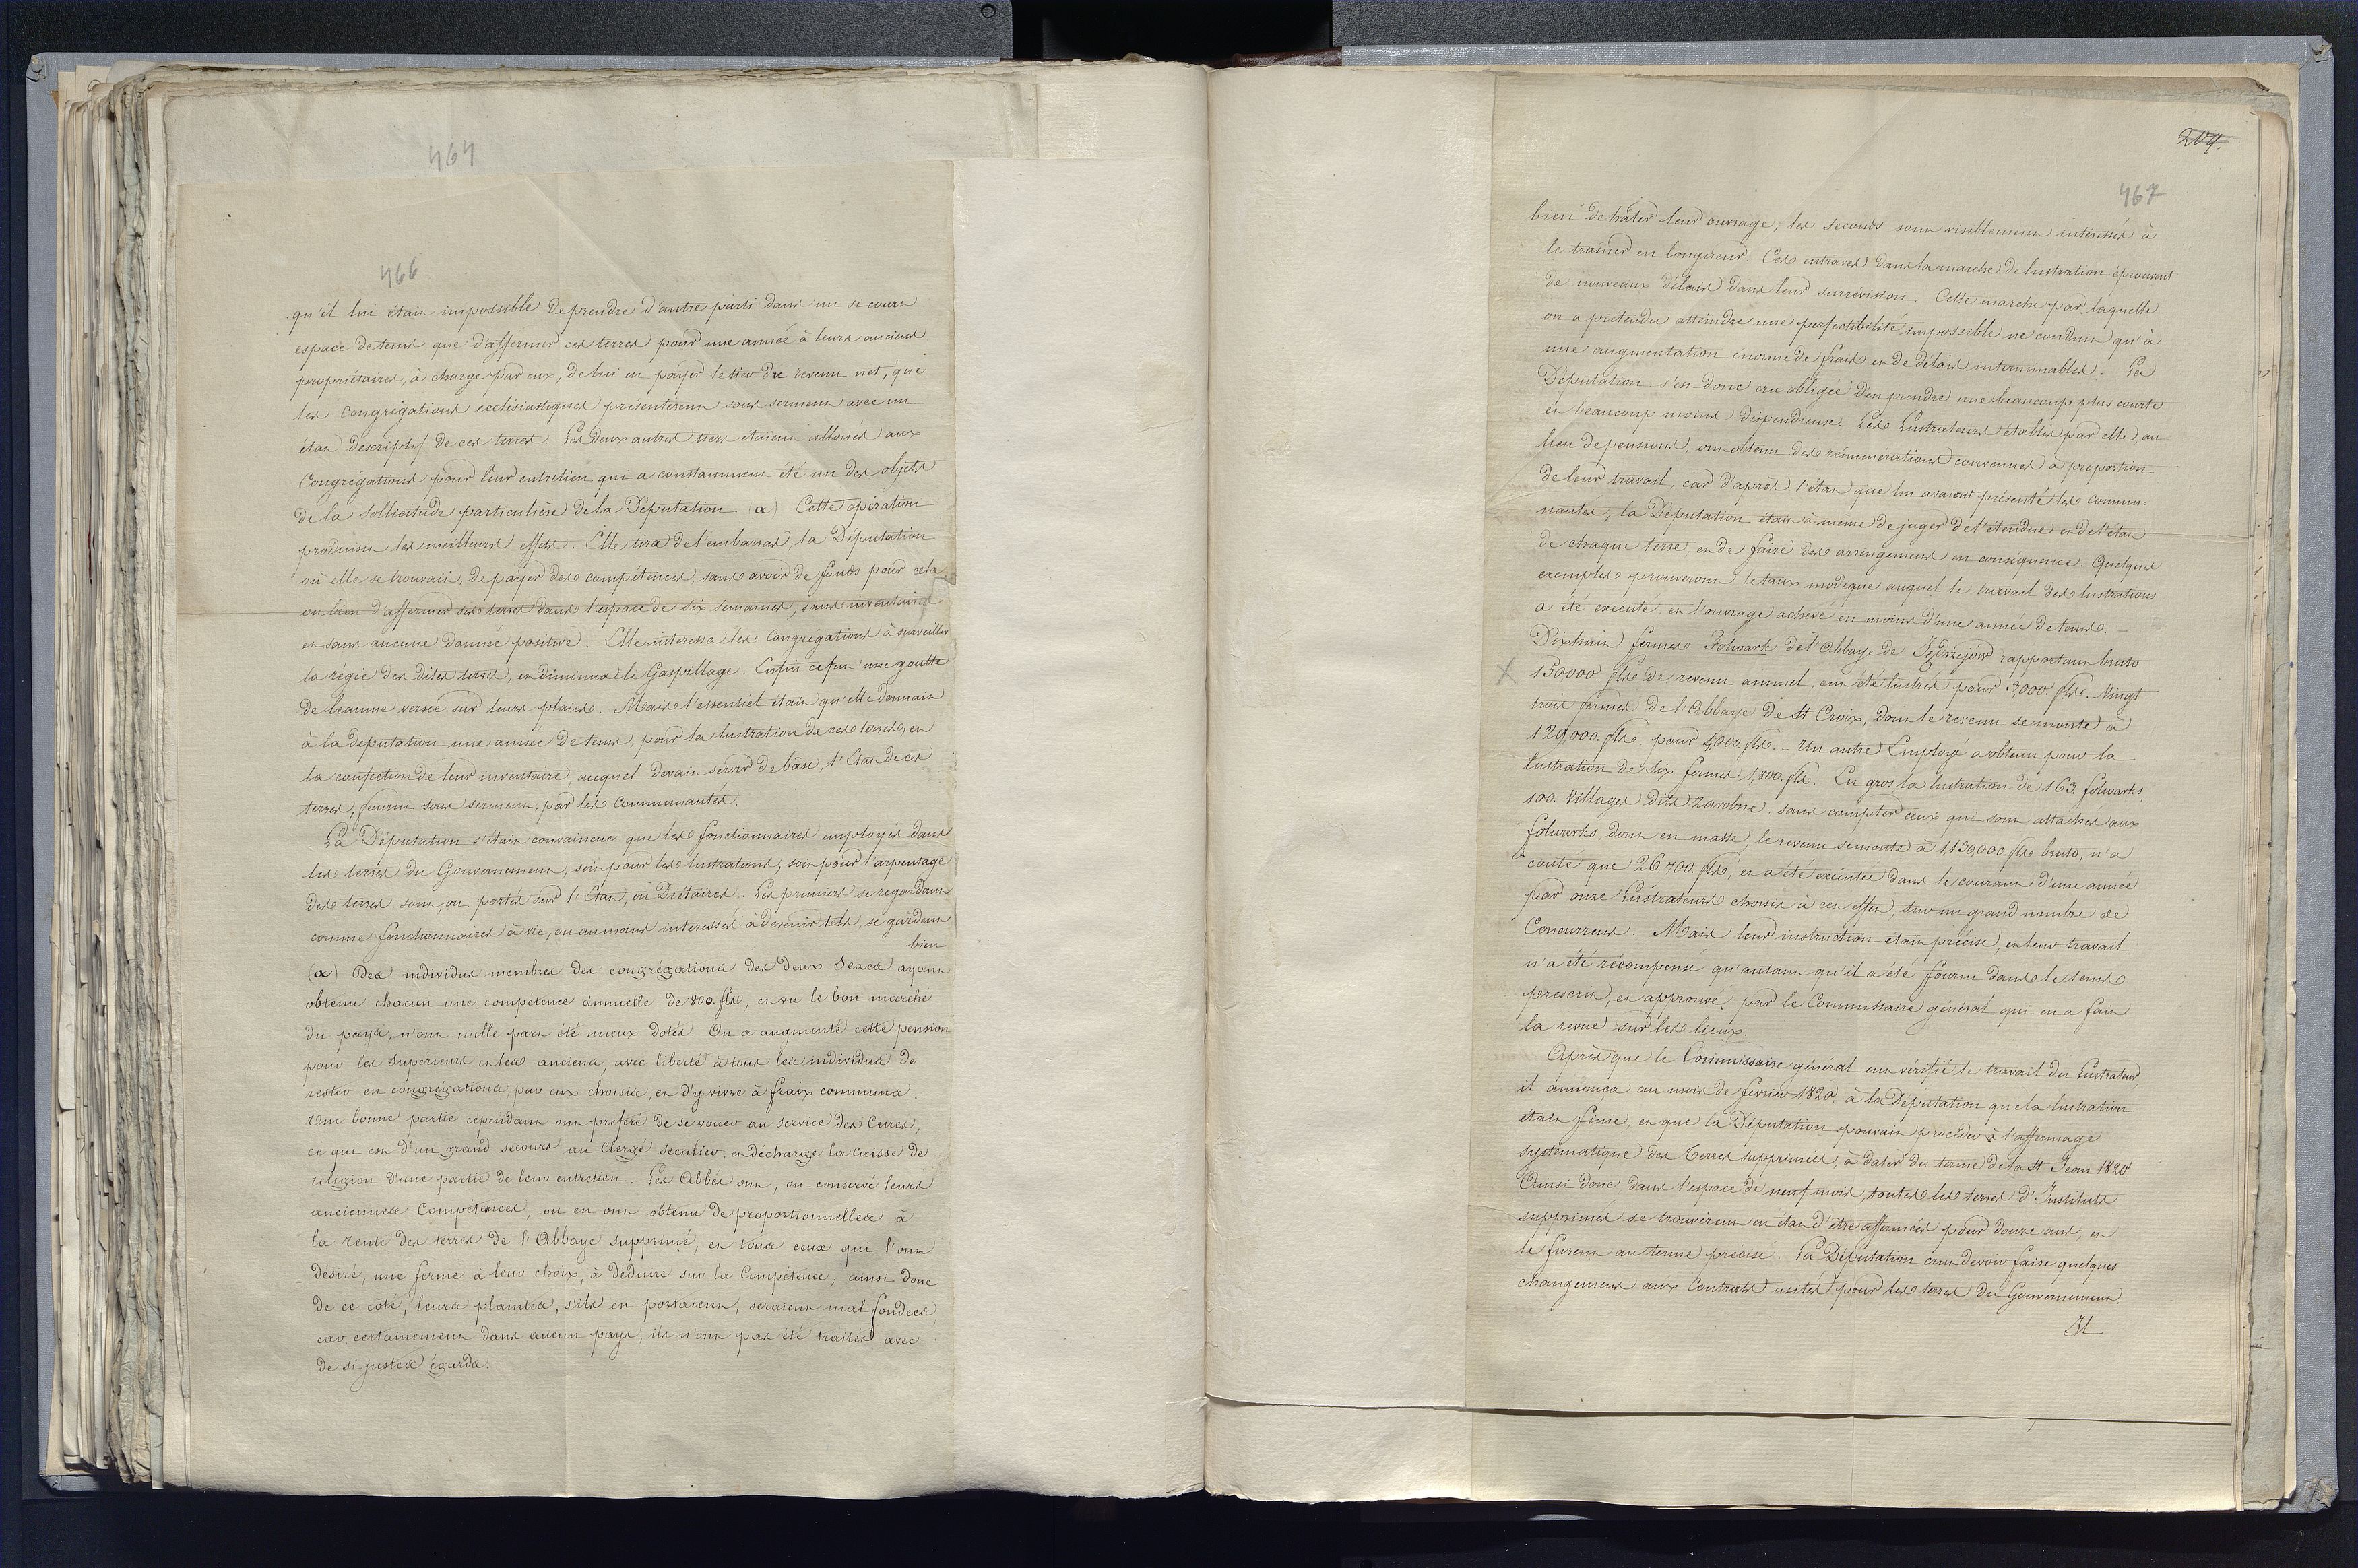 464
466
qu'il lui était impossible de prendre d'autre parti dans un si court
espace de tems que d'affermer ces terres pour une année à leurs anciens
propriétaires, à charge par eux, de lui en payer le tiers du revenu net, que
les Congrégations ecclésiastiques présentèrent sous serment avec un
état descriptif de ces terres. Les deux autres tiers étaient alloués aux
Congrégations pour leur entretien qui a constamment été un des objets
de la sollicitude particulière de la Députation (a) Cette opération
produisit les meilleurs effets. Elle tira de l'embarras, la Députation
où elle se trouvait, de payer des compétences, sans avoir de fonds pour cela
ou bien d'affermer ses terres dans l'espace de six semaines, sans inventaires
et sans aucune donnée positive. Elle interessa les Congrégations à surveiller
la régie des dites terres, et diminua le Gaspillage. Enfin ce fut une goutte
de beaume versée sur leurs plaies. Mais l'essentiel était qu'elle donnait
à la députation une année de tems, pour la lustration de ces terres, et
la confection de leur inventaire, auquel devait servir de bâse, l'Etat de ces
terres, fourni sous serment par les Communautés.
La Députation s'était convaincue que les fonctionnaires employés dans
les terres du Gouvernement, soit pour les lustrations, soit pour l'arpentage
des terres sont, ou portés sur l'Etat, ou Diétaires. Les premiers se regardant
comme fonctionnaires à vie, ou au moins interessés à devenir tels, se gardent
bien
(a) Des individus membres des congrégations des deux Sexes ayant
obtenu chacun une compétence annuelle de 800 fls, et vu le bon marché
du pays, n'ont nulle part été mieux dotés. On a augmenté cette pension
pour les Supérieurs et les anciens, avec liberté à tous les individus de
rester en congrégations par eux choisies, et d'y vivre à fraix communs.
Une bonne partie cependant ont preferé de se vouer au service des Cures,
ce qui est d'un grand secours au Clergé seculier, et décharge la Caisse de
religion d'une partie de leur entretien. Les Abbés ont, ou conservé leurs
anciennes Compétences, ou en ont obtenu de proportionnelles à
la rente des terres de l'Abbaye supprimé, et tous ceux qui l'ont
désiré, une ferme à leur choix, à déduire sur la Compétence; ainsi donc
de ce côté, leurs plaintes, s'ils en portaient, seraient mal fondées,
car certainement dans aucun pays, ils n'ont pas été traités avec
de si justes égards.
467
bien de hâter leur ouvrage, les seconds sont visiblement intéressés à
le traîner en longueur. Ces entraves dans la marche de lustration éprouvent
de nouveaux délais dans leur surrévision. Cette marche par laquelle
on a prétendu atteindre une perfectibilité impossible ne conduit qu'à
une augmentation énorme de frais et de délais interminables. La
Députation s'est donc cru obligée d'en prendre une beaucoup plus courte
et beaucoup moins dispendieuse. Les Lustrateurs établis par elle, au
lieu de pensions, ont obtenu des rémunérations convenues à proportion
de leur travail, car d'après l'état que lui avaient présenté les Commu-
nautés, la Députation était à même de juger de l'étendue et de l'état
de chaque terre, et de faire des arrangemens en conséquence. Quelques
exemples prouveront le taux modique auquel le travail des lustrations
a été exécuté, et l'ouvrage achevé en moins d'une année de tems. —
Dixhuit fermes Folwark de l'Abbaye de Jędrzejów rapportant bruto
X 150000 fls de revenu annuel, ont été lustrés pour 3,000. fls. Vingt
trois fermes de l'Abbaye de St Croix, dont le revenu se monte à
129,000. fls pour 4,000. fls. – Un autre Employé a obtenu pour la
lustration de Six fermes 1,800. fls. En gros la lustration de 163. folwarks,
100. Villages dits zarobne, sans compter ceux qui sont attachés aux
folwarks, dont en masse, le revenu se monte à 1,130,000. fls bruto, n'a
couté que 26,700. fls, et a été exécutée dans le courant d'une année
par onze Lustrateurs choisis à cet effet, sur un grand nombre de
Concurrens. Mais leur instruction était précise, et leur travail
n'a été récompensé qu'autant qu'il a été fourni dans le tems
prescrit, et approuvé par le Commissaire général qui en a fait
la revue sur les lieux.
Après que le Commissaire général eut vérifié le travail des Lustrateurs
il annonça au mois de février 1820. à la Députation que la lustration
était finie, et que la Députation pouvait procéder à l'affermage
systématique des Terres supprimées, à dater du terme de la St Jean 1820
Ainsi donc, dans l'espace de neuf mois, toutes les terres d'Instituts
supprimés se trouvèrent en état d'être affermées pour douze ans, et
le furent au terme précis. La Députation crut devoir faire quelques
changemens aux Contrats usités pour les terres du Gouvernement.
Il